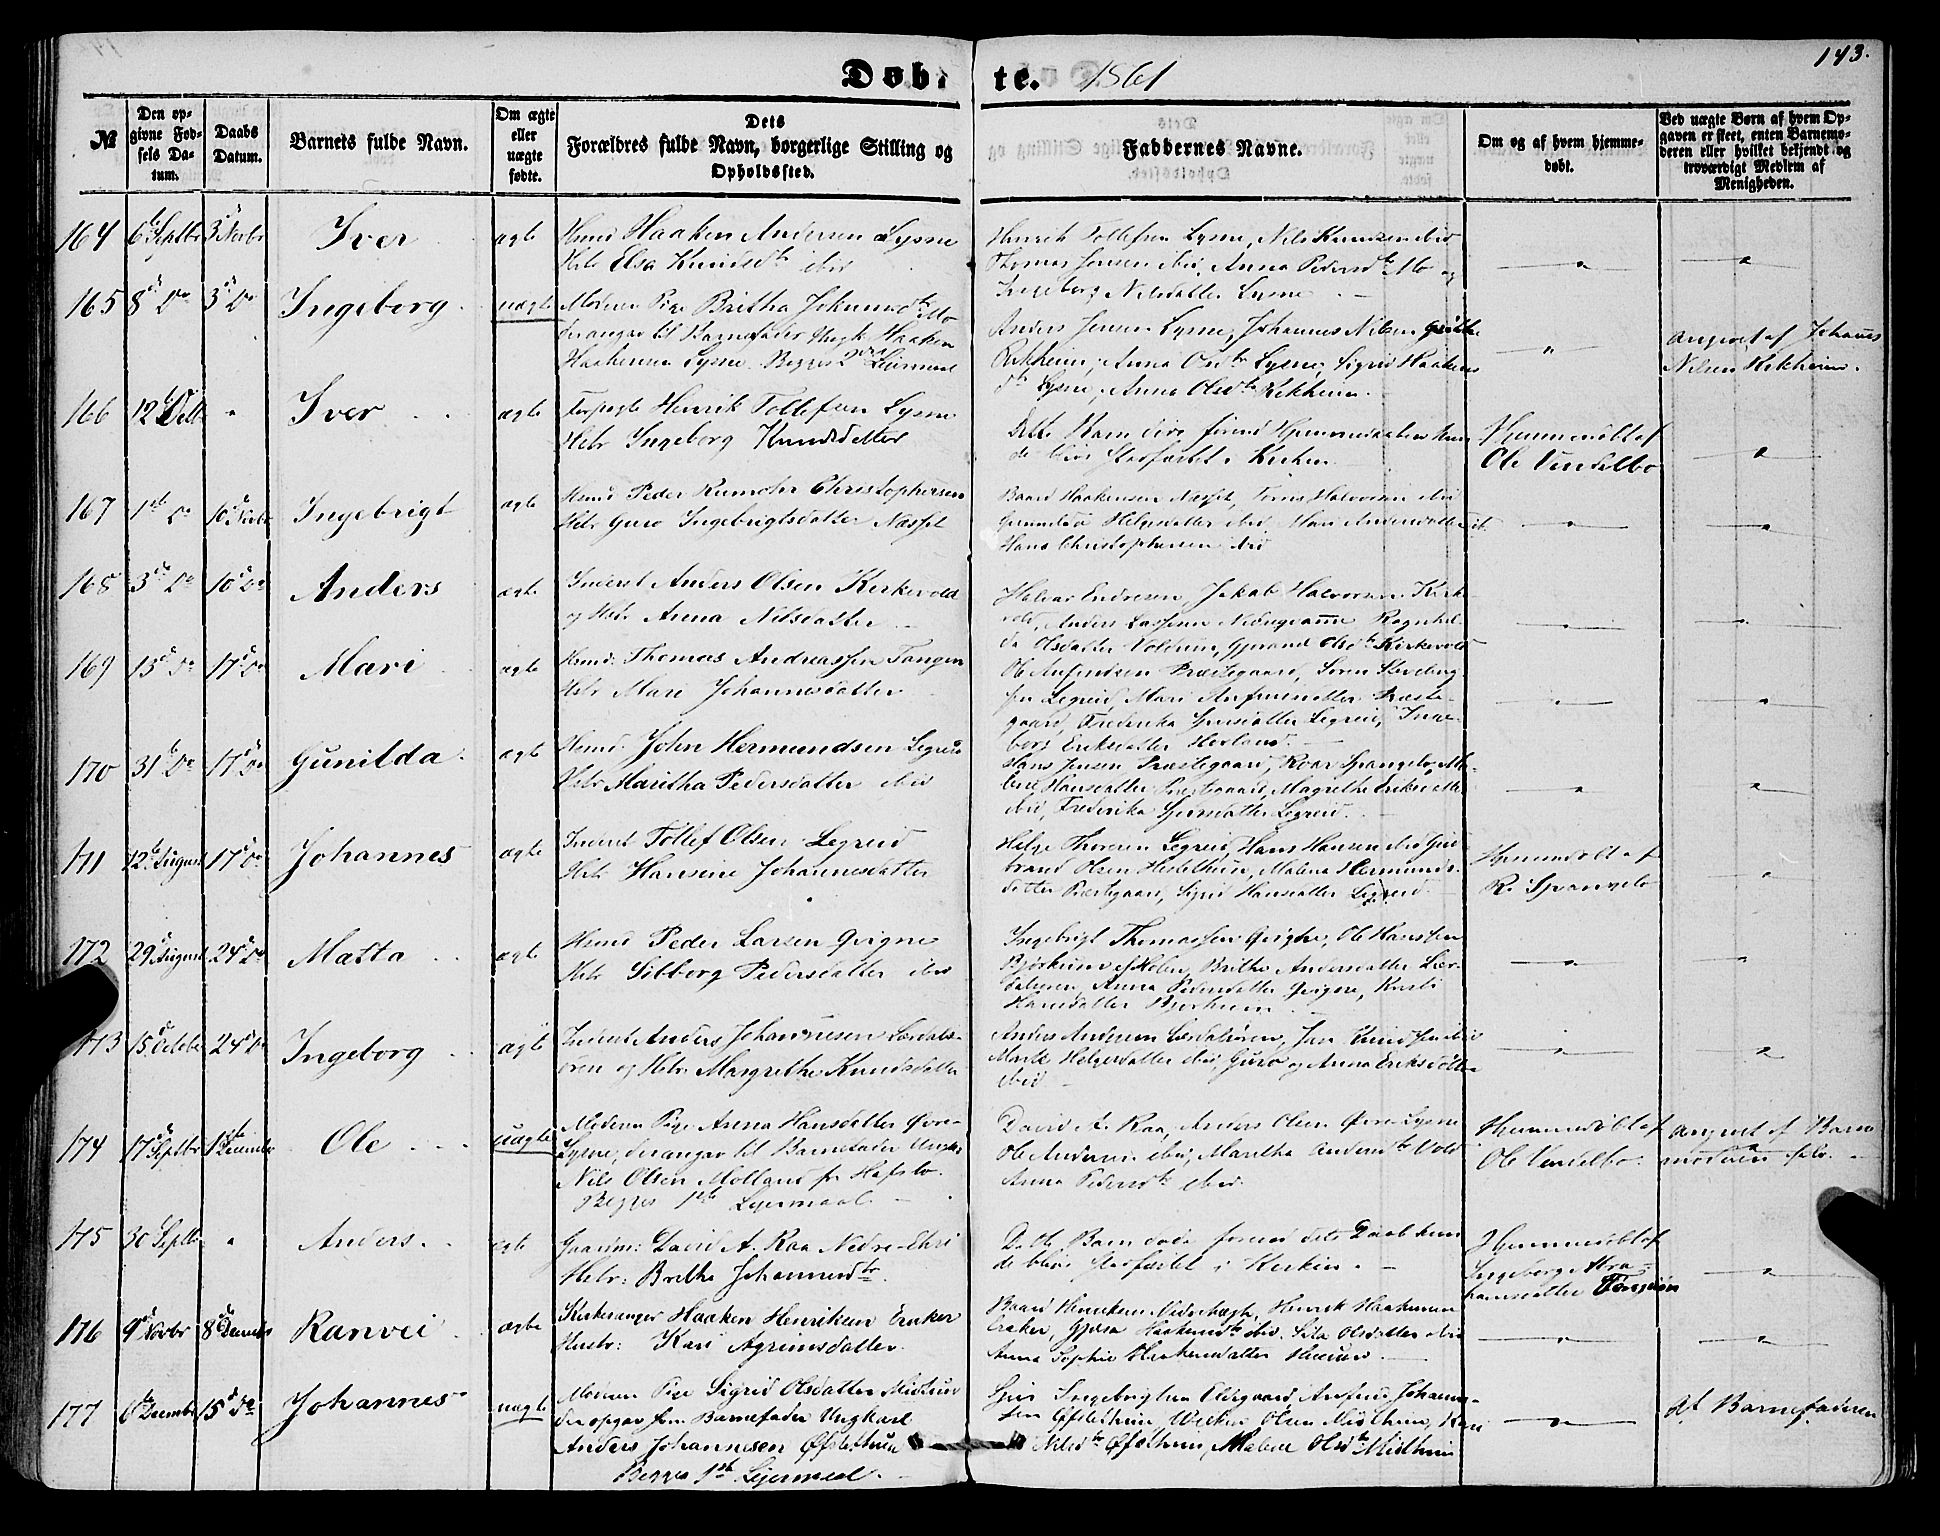 143.
Døb- te. 1861
№
Den op-
givne Fød-
sels Da-
tum.
Daabs
Datum.
Barnets fulde Navn.
Om ægte
eller
uægte
fødte.
Dets
Forældres fulde Navn, borgerlige Stilling og
Opholdssted.
Faddernes Navne.
Om og af hvem hjemme-
døbt.
Ved uægte Børn af hvem Op-
gaven er skeet, enten Barnemo-
deren eller hvilket bekjendt og
troværdigt Medlem af
Menigheden.
164 6te Septbr 3d Novbr Iver ægte Hmd Haaken Andersen Lysne
Hstr Elsa Knudsdtr ibid
Henrik Tollefsen Lysne, Nils Knudsen ibid
Thomas Jensen ibid, Anna Pedersdtr Mo og
Ingeborg Nilsdatter Lysne
165 8d Do 3d Do Ingeborg uægte Moderen Pige Britha Johannesdtr Mo
derangav til Barnefader Ungk Haaken
Haakensen Lysne. Begges 2det Leiermaal
Anders Jensen Lysne, Johannes Nilsen
Rikheim, Anna Olsdtr Lysne, Sigrid Haakens
dtr Lysne, Anna Olsdtr Rikheim.
angivet af Johannes
Nilsen Rikheim.
166 12te Iver ægte Forpagter Henrik Tollefsen Lysne
Hstr Ingeborg Knudsdatter
Dette Barn døde forend Hjemmedaaben kun
de blive stadfæstet i Kirken
Hjemmedøbt af
Ole Vendelbo
167 1ste Do 10d Novbr Ingebrigt ægte Hsmd Peder Rumohr Christophersen
Hstr Guro Ingebrigtsdatter Næsset
Baard Haakensen Næsset, Tørris Halvorsen ibid
Gunnilda Helgesdatter ibid, Mari Andersdatter ibid
Hans Christophersen ibid
168 3d Do 10d Do Anders ægte Inderst Anders Olsen Kirkevold
og Hstr Anna Nilsdatter
Halvor Endresen, Jakob Halvorsen Kirke-
vold, Anders Lassesen Nedregaarne Ragnhil-
da Olsdatter Voldum, Gjorand Olsdtr Kirkevold
169 13d Do 17d Do Mari ægte Hsmd: Thomas Andreassen Tangen
Hstr Mari Johannesdatter
Ole Anfindsen Præstegaard, Søren
Legreid, Mari Anfindsdatter Præste-
gaard, Frederika Legreid, Inge-
borg Eriksdatter Hovland.
170 31te Do 17d Do Gunilda ægte Hsmd. John Hermundsen Legreid
Hstr Maritha Pedersdatter ibid
Hans Jensen Præstegaard, Roar Spangelo, Ma-
lene Hansdatter Præstegaard, Magrethe Eriksdatter
ibid, Frederika Legreid.
171 12te August 17d Do Johannes ægte Inderst Tollef Olsen Legreid
Hstr Hansine Johannesdatter
Helge Thoresen Legreid, Hans Hansen ibid Gul
brand Olsen Hestethun, Malena Hermunds-
datter Præstegaard, Sigrid Hansdatter Legreid.
Hjemmedøbt af
R. Spangelo
172 29d August 24d Do Matta ægte Hsmd Peder Larsen Qvigne
Hstr Sibborg Pedersdatter ibid
Ingebrigt Thomassen Qvigne, Ole Hanssen
Bjørkum af Holen, Britha Andersdatter Lær-
dalsøren, Anna Pedersdatter Qvigne, Kristi
Hansdatter Bjørkum
173 15d October 24d Do Ingeborg ægte Inderst Anders Johannesen Lærdals-
øren og Hstr Margrethe Knudsdatter
Anders Andersen Lærdalsøren, Jan Knudssen ibid
Marte Helgesdatter ibid, Guro og Anna Eriksdøttre
ibid
174 17d Septbr 1ste December Ole uægte Moderen Pige Anna Hansdatter Øvre-
Lysne, derangav til Barnefader Ungkar
Nils Olsen Molland fr Hafslo.
Begges 1ste Leiermaal
David A. Raa, Anders Olsen Øvre Lysne
Ole Andersen ibid, Maritha Andersdtr Vold
Anna Pedersdtr ibid.
Hjemmedøbt af
Ole Vendelbo.
angivet af Barne
moderen selv.
175 30d Septbr Anders ægte Gaardm: David A. Raa Nedre-Ehri
Hstr: Britha Johannesdtr
Dette Barn døde forend dets Daab kun
de blive stadfæstet i Kirken.
Hjemmedøbt af
Ingeborg Abra-
hamsdatter
176 9d Novbr 8d Decembr Ranvei ægte Kirkesanger Haaken Henriksen Eraker
Hustr: Kari Agrimsdatter
Baard Henriksen Nedrehægh, Henrik Haakensen
Eraker, Gjøsa Haakensdtr ibid. Sila Olsdatter ibid
Anna Sophie Haakensdatter
177 6te Decembr 15d Do Johannes uægte Moderen Pige Sigrid Olsdatter Midthun
deropgav som Barnefader Ungkarl
Anders Johannesen Øfstethun
Begges 1ste Leiermaal.
Ingebrigtsen Eldegaard, Anfind Johannes-
sen Øfstethun, Olsen Midthun, Kari
Nilsdtr Øfstethun, Malene Olsdtr Midthun
Af Barnefaderen